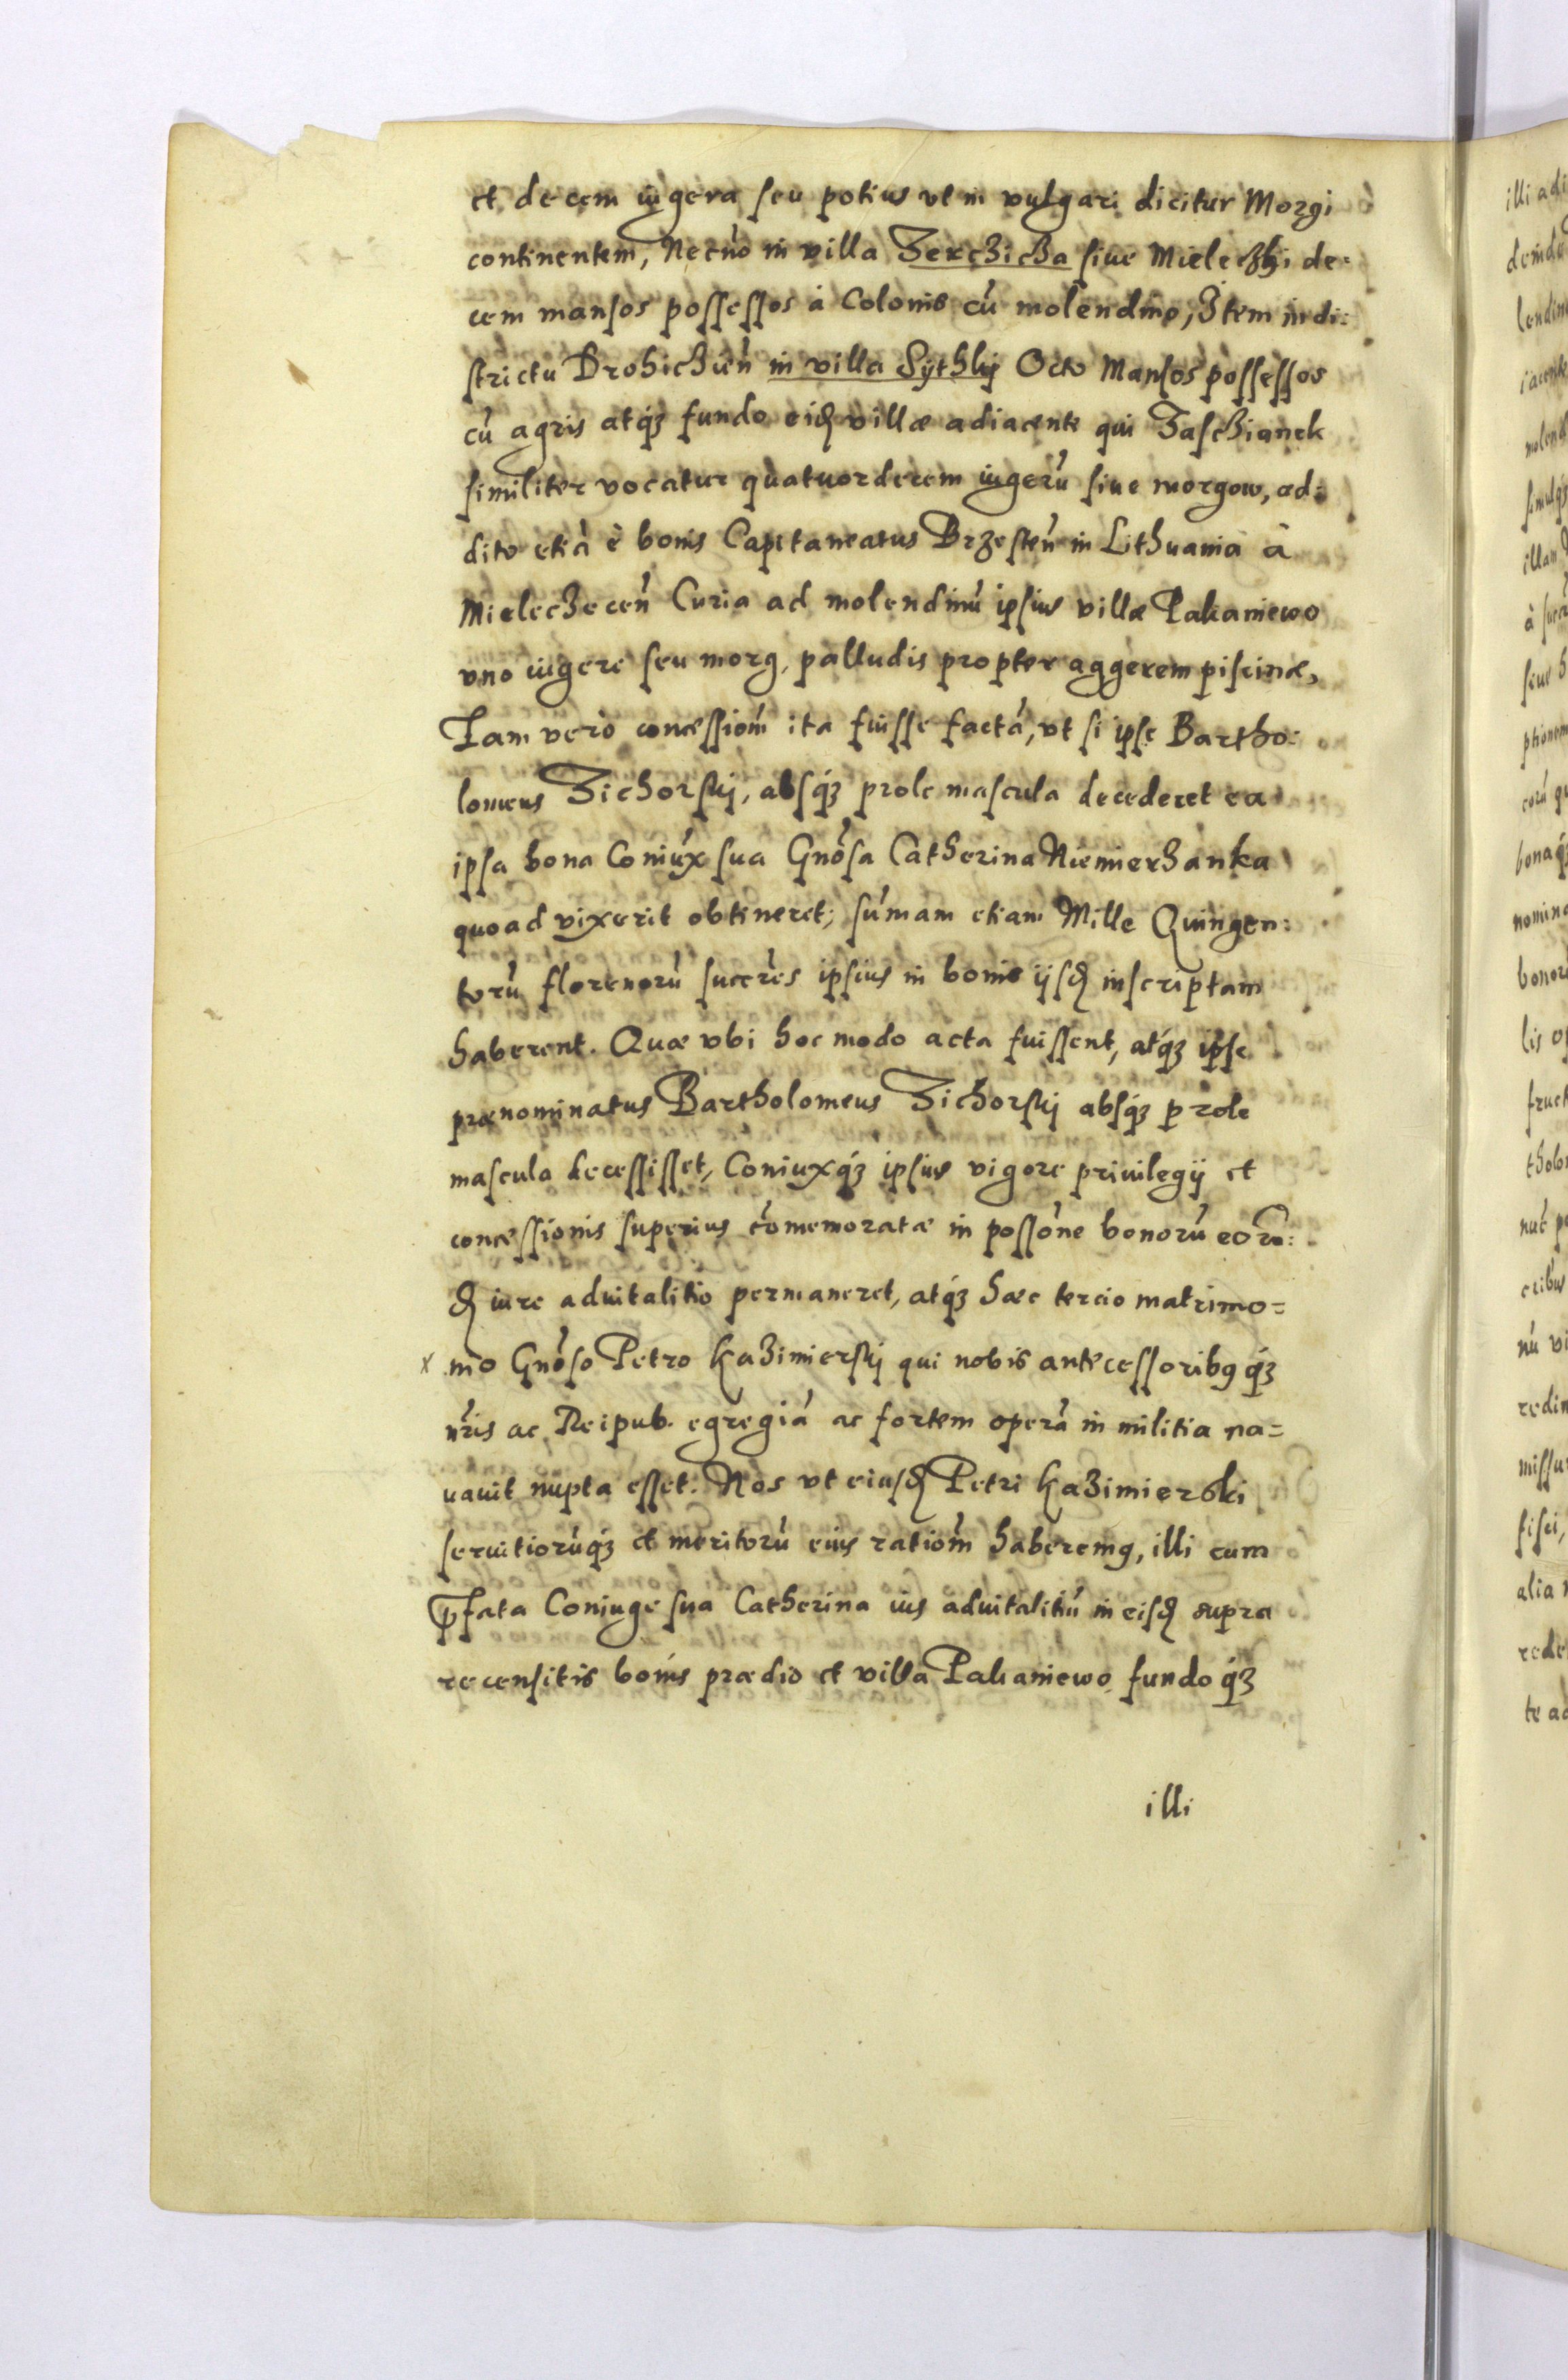 et decem iugera seu potius vt in vulgari dicitur Morgi
continentem, Necnō in villa Terchicha siue Mielechi de=
cem mansos possessos à Colonis cū molendino, Item in di=
strictu Drohichień in villa Sythky Octo Mansos possessos
cū agris atq́ꝫ fundo eidꝫ villæ adiacente qui Zaschianek
similiter vocatur quatuordecem iugerū siue morgow, ad=
dito etiā è bonis Capitaneatus Brzesteń in Lithuania à
Mielecheceń Curia ad molendinū ipsius villæ Pakaniewo
vno iugere seu morg, palludis propter aggerem piscinæ,
Tam vero concessiom̄ ita fuisse factā, vt si ipse Bartho=
lomeus Zichorskj, absq́ꝫ prole mascula decederet ea
ipsa bona Coniux sua Gnōsa Catherina Niemierzanka
quoad vixerit obtineret; sum̄am etiam Mille Quingen=
torū florenorū succr̄es ipsius in bonis ijsdꝫ inscriptam
haberent. Quæ vbi hoc modo acta fuissent, atq́ꝫ ipse
prænominatus Bartholomeus Zichorskj absq́ꝫ prole
mascula decessisset, Coniuxq́ꝫ ipsius vigore priuilegij et
concessionis superius com̄emoratæ in possōne bonorū eorū=
dꝫ iure aduitalitio permaneret, atq́ꝫ hæc tercio matrimo=
x nio Gnōso Petro Kazimierskj qui nobis antecessoribꝰ q́ꝫ
nr̄is ac Reipub. egregiā ac fortem operā in militia na=
uauit nupta esset. Nos vt eiusdꝫ Petri Kazimierski
seruitiorūq́ꝫ et meritorū eius ratiom̄ haberemꝰ, illi cum
p̄fata Coniuge sua Catherina ius aduitalitiū in eisdꝫ supra
recensitis bonis prædio et villa Pakaniewo fundo q́ꝫ
illi